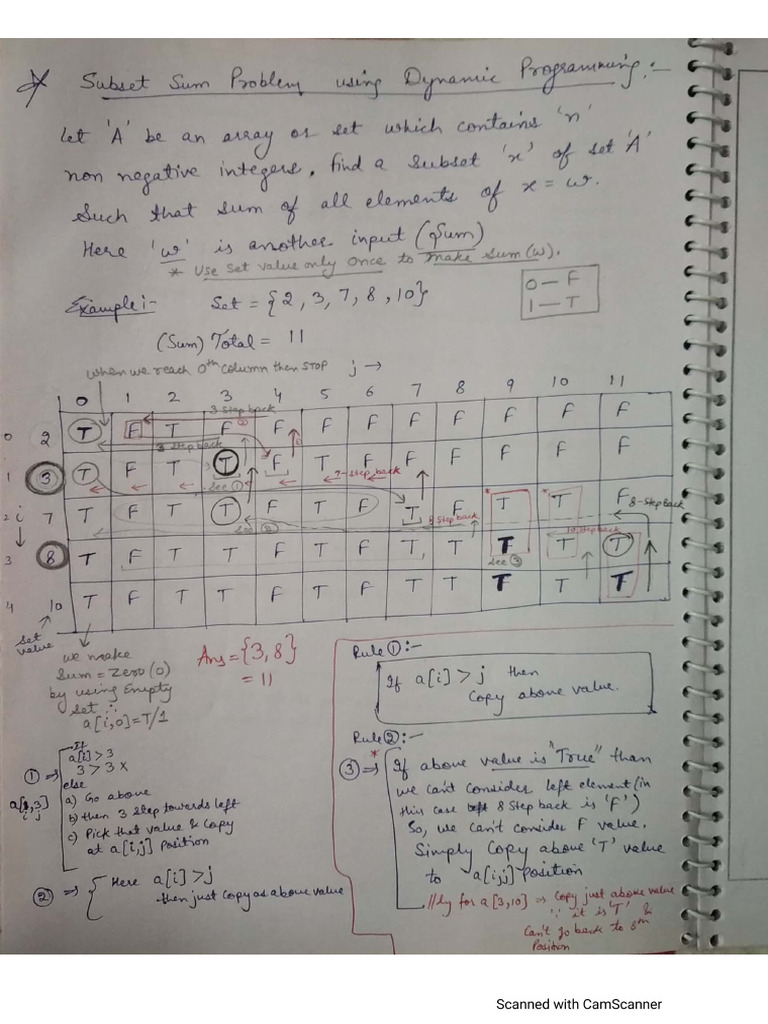 Subset Sum Problem using Dynamic Programming:-
Let 'A' be an array or set which contains 'n'
non negative integers, find a subset 'x' of set 'A'
Such that sum of all elements of x = w.
Here 'w' is another input (Sum)
* Use set value only once to make sum (w).
0 — F
1 — T
Example:- Set = {2, 3, 7, 8, 10}
(Sum) Total = 11
when we reach 0th column then STOP j →
0 1 2 3 4 5 6 7 8 9 10 11
3 step back
0 2 T F T F F F F F F F F F
3 step back
1 3 T F T T F T F F F F F F
see ① 7-step back
2 i 7 T F T T F T F T F T T F
8-step back
see ② 8 step back 10 step back
3 8 T F T T F T F T T T T T
see ③
4 10 T F T T F T F T T T T T
set value
we make
Sum = Zero (0)
by using Empty
set ∴
a[i,0] = T/1
Ans = {3, 8}
= 11
Rule ① :-
If a[i] > j then
Copy above value.
Rule ② :-
③ ⇒ * If above value is "True" than
we can't consider left element (in
this case 8 step back is 'F')
So, we can't consider F value.
Simply Copy above 'T' value
to a[i,j] position
//ly for a[3,10] ⇒ Copy just above value
∵ it is 'T' &
can't go back to 8th
Position
① ⇒ If
a[i] > 3
3 > 3 x
else
a) Go above
b) then 3 step towards left
c) Pick that value & Copy
at a[i,j] position
i j
② ⇒ Here a[i] > j
then just copy as above value
Scanned with CamScanner